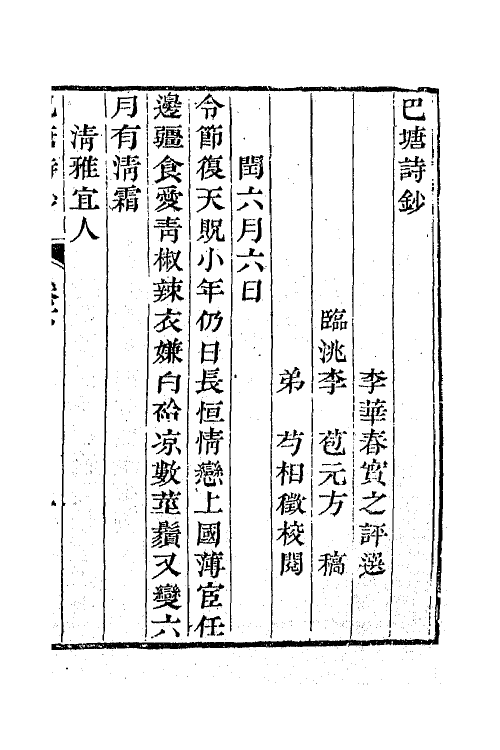 巴塘詩鈔
李華春實之評選
臨洮李　苞元方　稿
弟　芍相徵校閱
閏六月六日
令節復天貺小年仍日長恒情戀上國薄宦任
邊疆食愛青椒辣衣嫌白袷凉數莖鬚又變六
月有淸霜
淸雅宜人